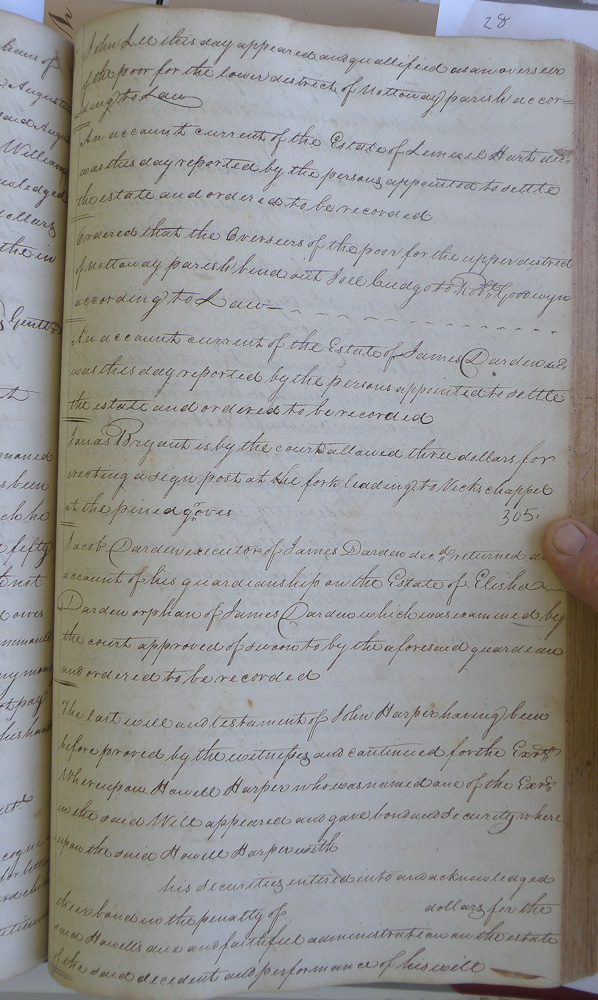 28
John Lee this day appeared and quallified as an overseer
of the poor for the lower district of Nottoway parish accor=
ding to Law
An account current of the Estate of Lemuel Hart decd.
was this day reported by the persons appointed to settle
the estate and ordered to be recorded
Ordered that the Overseers of the poor for the upper district
of Nottoway parish bind out Joel to Robt. Goodwyn
according to Law
An account current of the Estate of James Darden decd.
was this day reported by the persons appointed to settle
the estate and ordered to be recorded
Jonas Bryant is by the court allowed three dollars for
erecting a sign post at the fork leading to Vicks chappel
at the
305.
Jacob Darden executor of James Darden decd. returned an
account of his guardianship on the Estate of Elisha
Darden orphan of James Darden which was examined by
the court approved of sworn to by the aforesaid guardian
and ordered to be recorded
The last will and testament of John Harper having been
before proved by the witnesses and continued for the Exors.
Whereupon Howell Harper who was named one of the Exors.
in the said Will appeared and gave bond and security where
upon the said Howell Harper with
his securities entered into and acknowledged
their bond in the penalty of dollars for the
said Howells due and faithful administration on the estate
of the said decedent and performance of his will